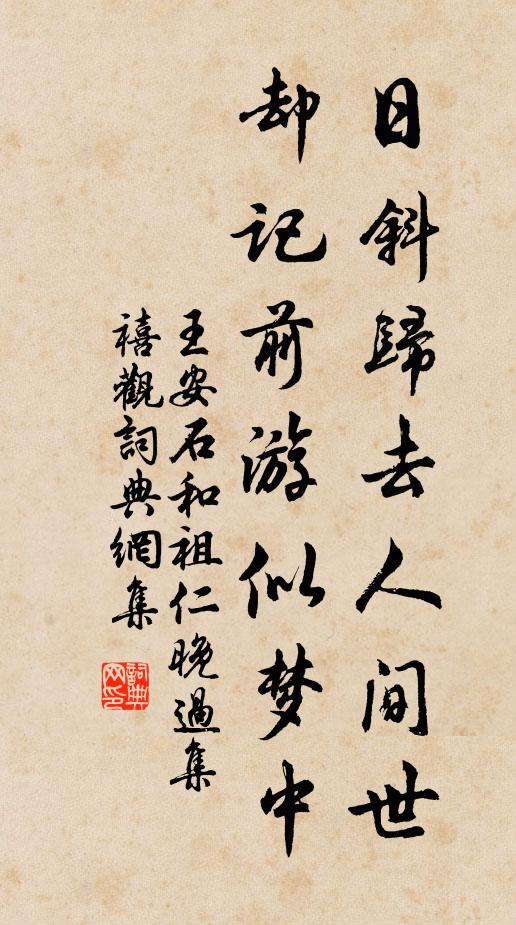 日斜歸去人间世
却记前游似梦中
王安石和祖仁晚過集
禧觀詞典網集
詞典
网印